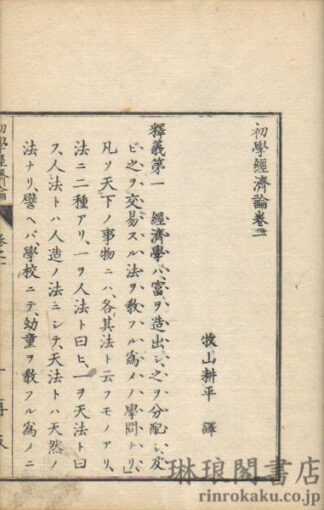 初學經濟論卷一
牧山耕平 譯
釋義第一 經濟學ハ、富ヲ造出シ、之ヲ分配シ、及
ビ之ヲ交易スル法ヲ敎フル爲メノ學問ナリ、」
凡ソ天下ノ事物ニハ、各其法ト云フモノアリ、
法ニ二種アリ、一ヲ人法ト曰ヒ、一ヲ天法ト曰
フ、人法トハ人造ノ法ニシテ、天法トハ天然ノ
法ナリ、譬ヘバ、學校ニテ、幼童ヲ敎フル爲メニ
初學經濟論
卷之一
琳琅閣書店
rinrokaku.co.jp